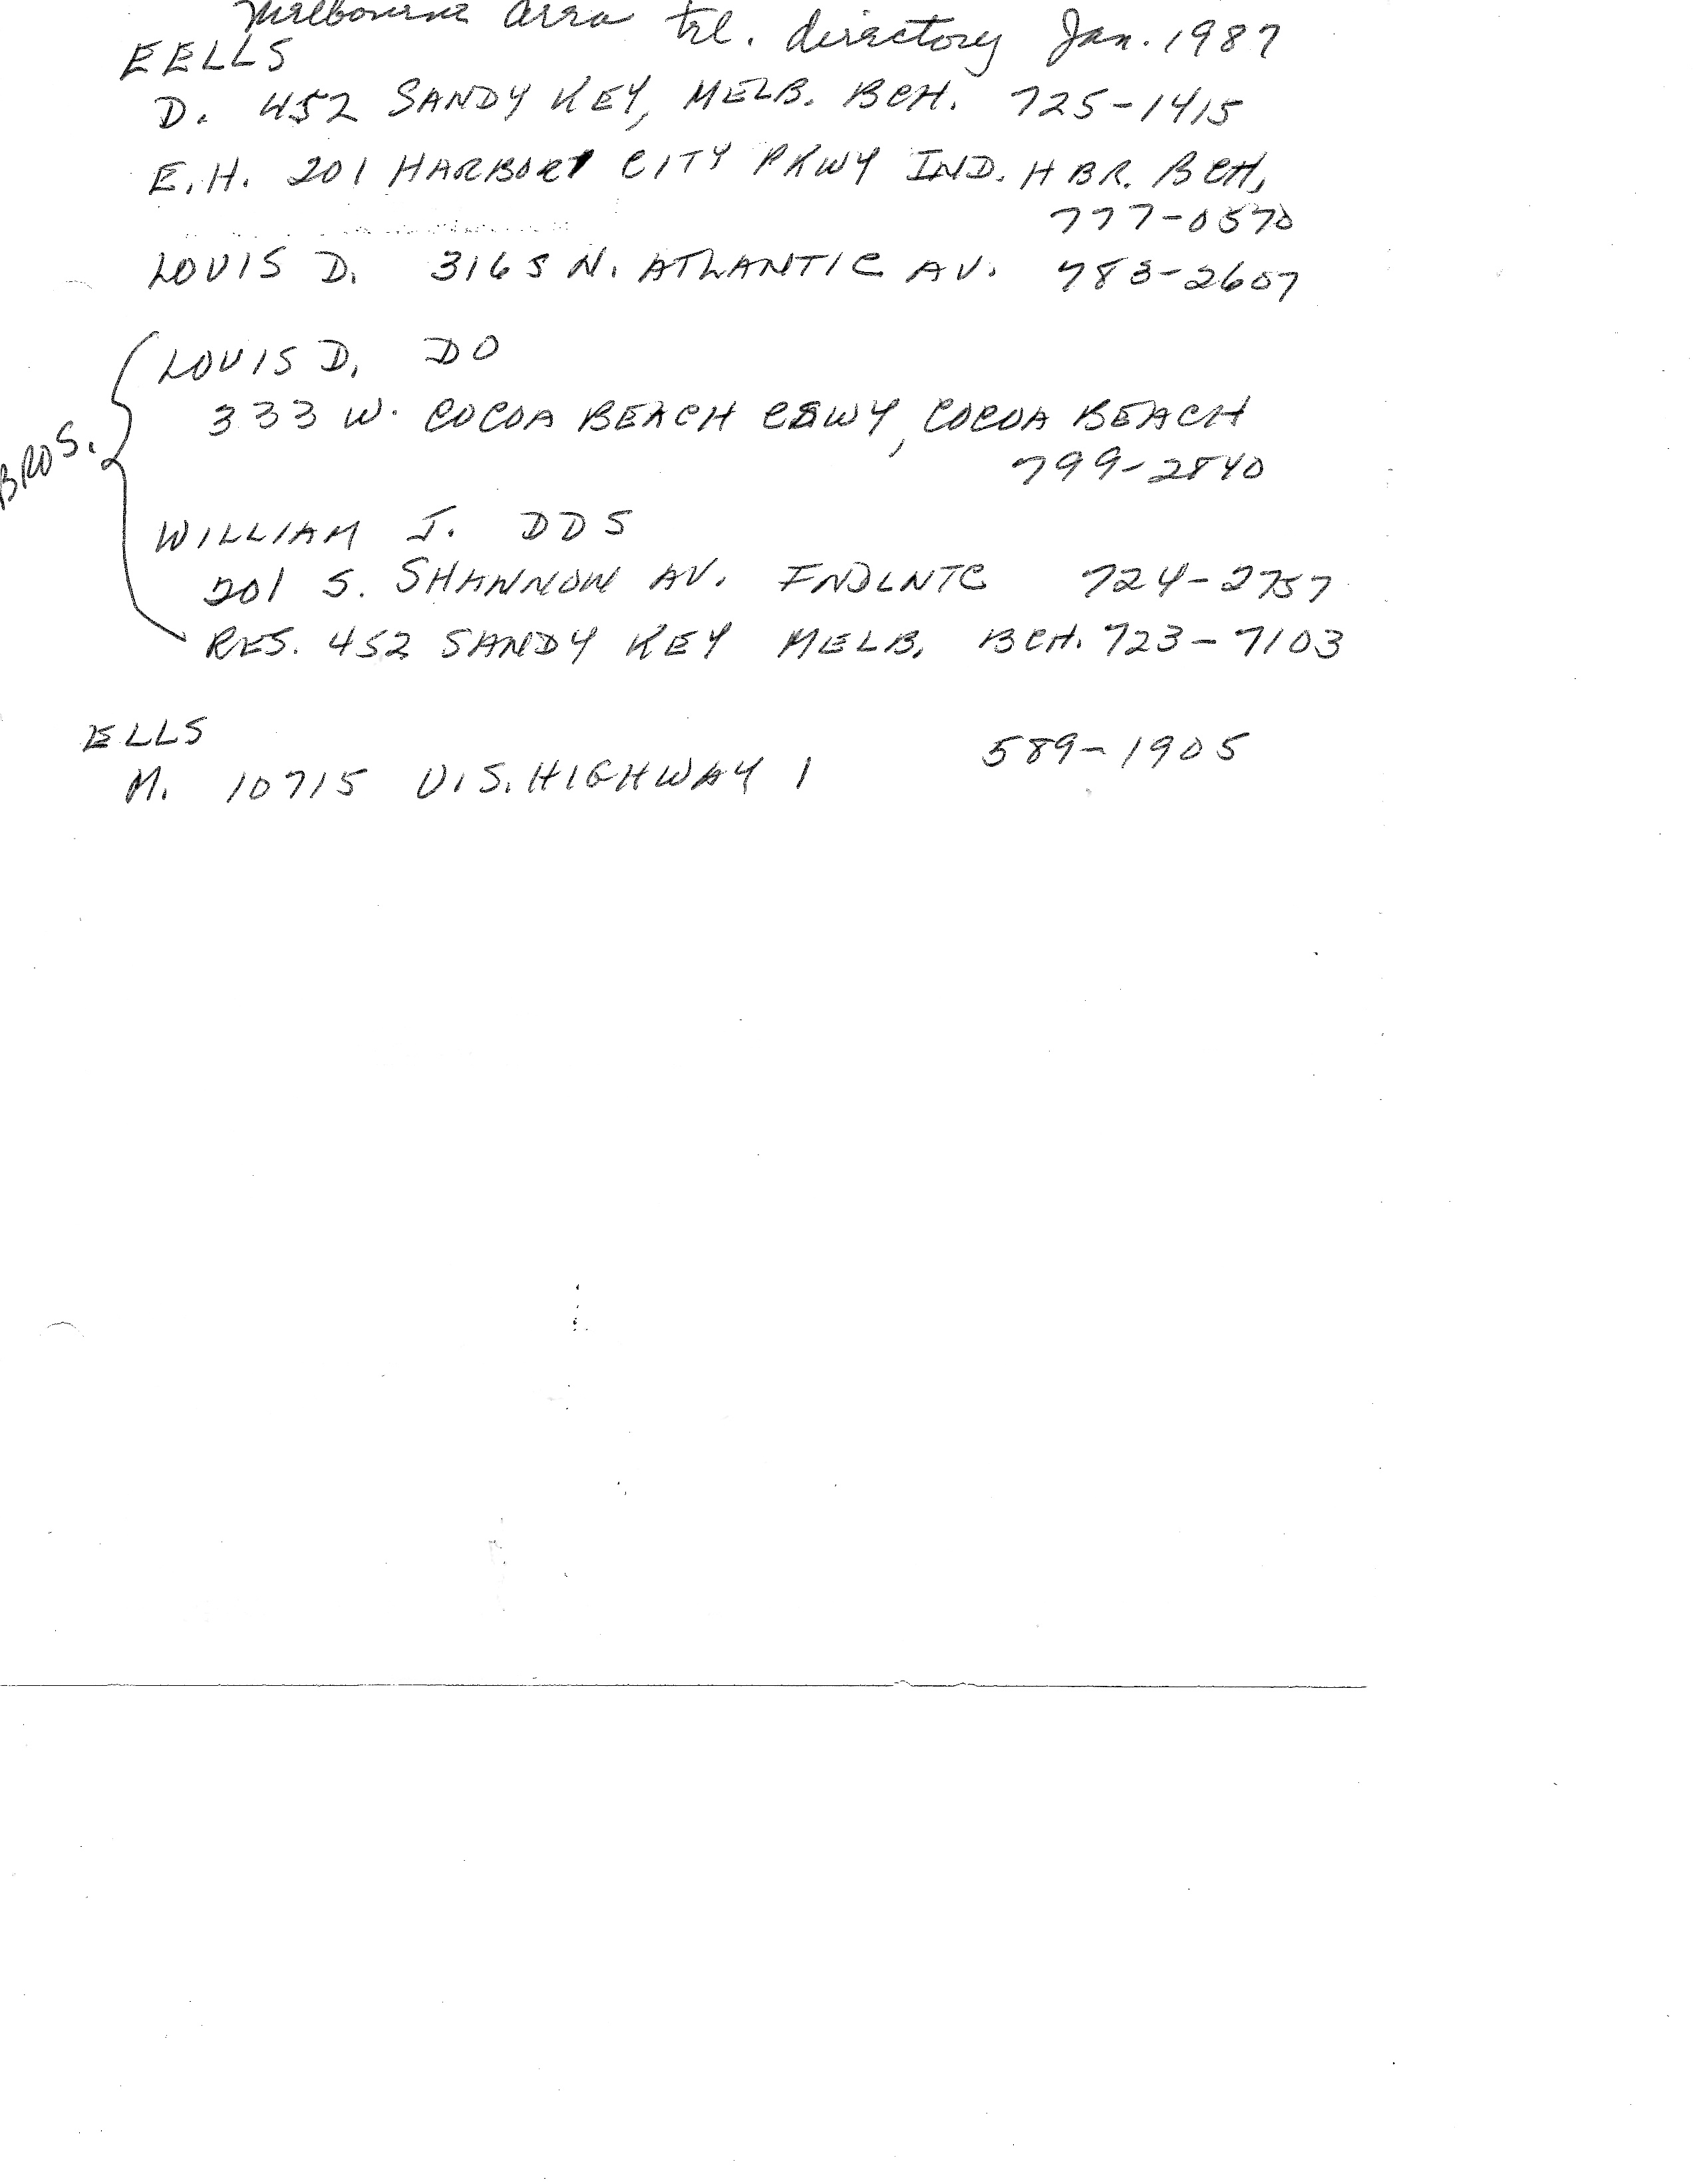 Melbourne area tel. directory Jan. 1987
EELLS
D. 452 SANDY KEY, MELB. BCH. 725-1415
E.H. 201 HARBOR CITY PKWY IND. HBR. BCH,
777-0570
LOUIS D. 3165 N. ATLANTIC AV. 783-2607
BROS.
LOUIS D. DO
333 W. COCOA BEACH CSWY, COCOA BEACH
799-2840
WILLIAM J. DDS
201 S. SHANNON AV. INDLNTC 724-2757
RES. 452 SANDY KEY MELB. BCH. 723-7103
ELLS
M. 10715 U.S. HIGHWAY 1 589-1905